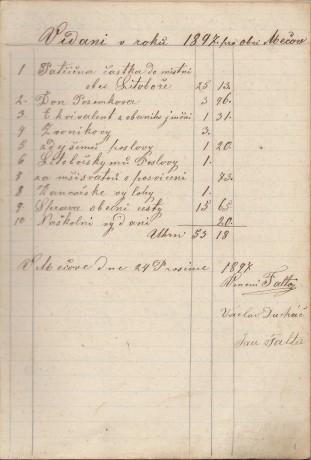 Vidani v roku 1897. pro obci Mečov
1 Patřičná částka do místní
obce Litoboře 25 13.
2. Don Posenkova 3 96.
3. Ekvivalent z obecniho jmění 1 31.
4 Zvonikovy 3.
5 zdyšnimu poslovy 1 20.
6 Litobořskymu Poslovy 1.
8 za mši svatou o posviceni 73.
8 Kancařske vylohy 1.
9. Sprava obecni cesty 15 65
10 Naškolni vydani 20.
Uhrn 53 18
V Mečove dne 24 Prosince 1897.
Vincenc Falta
Václav Ducháč
Jan Falta